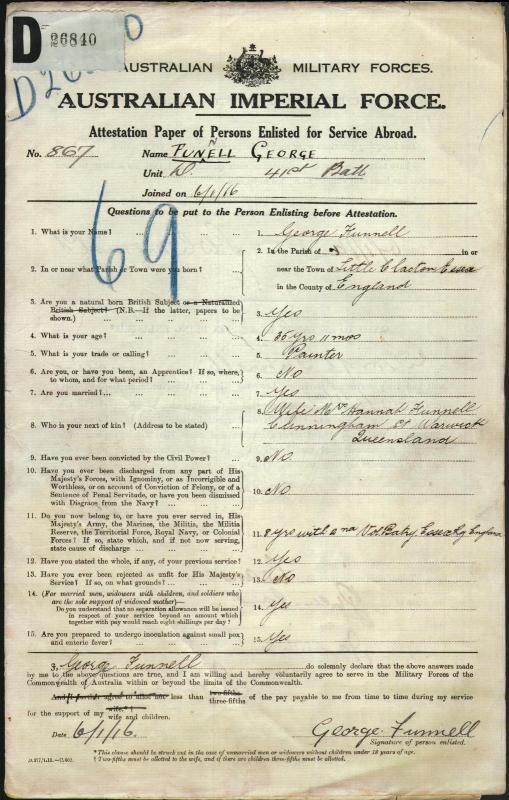 D 26840
D26840
AUSTRALIAN MILITARY FORCES.
AUSTRALIAN IMPERIAL FORCE.
Attestation Paper of Persons Enlisted for Service Abroad.
No. 867 Name FUNNELL GEORGE
Unit D. 41st Batt
Joined on 6/1/16
69
Questions to be put to the Person Enlisting before Attestation.
1. What is your Name? ... 1. George Funnell
2. In or near what Parish or Town were you born? ... 2. In the Parish of in or
near the Town of Little Clacton Essex
in the County of England
3. Are you a natural born British Subject or a Naturalised
British Subject? (N.B.—If the latter, papers to be
shown.) ... 3. Yes
4. What is your age? ... 4. 35 yrs 11 mos
5. What is your trade or calling? ... 5. Painter
6. Are you, or have you been, an Apprentice? If so, where,
to whom, and for what period? ... 6. No
7. Are you married? ... 7. Yes
8. Who is your next of kin? (Address to be stated) ... 8. Wife Mrs Hannah Funnell
St Warwick
Queensland
9. Have you ever been convicted by the Civil Power? ... 9. No
10. Have you ever been discharged from any part of His
Majesty's Forces, with Ignominy, or as Incorrigible and
Worthless, or on account of Conviction of Felony, or of a
Sentence of Penal Servitude, or have you been dismissed
with Disgrace from the Navy? ... 10. No
11. Do you now belong to, or have you ever served in, His
Majesty's Army, the Marines, the Militia, the Militia
Reserve, the Territorial Force, Royal Navy, or Colonial
Forces? If so, state which, and if not now serving,
state cause of discharge ... 11. 8 yrs with England
12. Have you stated the whole, if any, of your previous service? 12. Yes
13. Have you ever been rejected as unfit for His Majesty's
Service? If so, on what grounds? ... 13. No
14. (For married men, widowers with children, and soldiers who
are the sole support of widowed mother)—
Do you understand that no separation allowance will be issued
in respect of your service beyond an amount
which together with pay would reach eight shillings per day? 14. Yes
15. Are you prepared to undergo inoculation against small pox
and enteric fever? ... 15. Yes
I, George Funnell do solemnly declare that the above answers made
by me to the above questions are true, and I am willing and hereby voluntarily agree to serve in the Military Forces of the
Commonwealth of Australia within or beyond the limits of the Commonwealth.
And I further agree to allot not less than two-fifths
three-fifths of the pay payable to me from time to time during my service
for the support of my wife.
wife and children.
Date 6/1/16. George Funnell
Signature of person enlisted.
*This clause should be struck out in the case of unmarried men or widowers without children under 18 years of age.
† Two-fifths must be allotted to the wife, and if there are children three-fifths must be allotted.